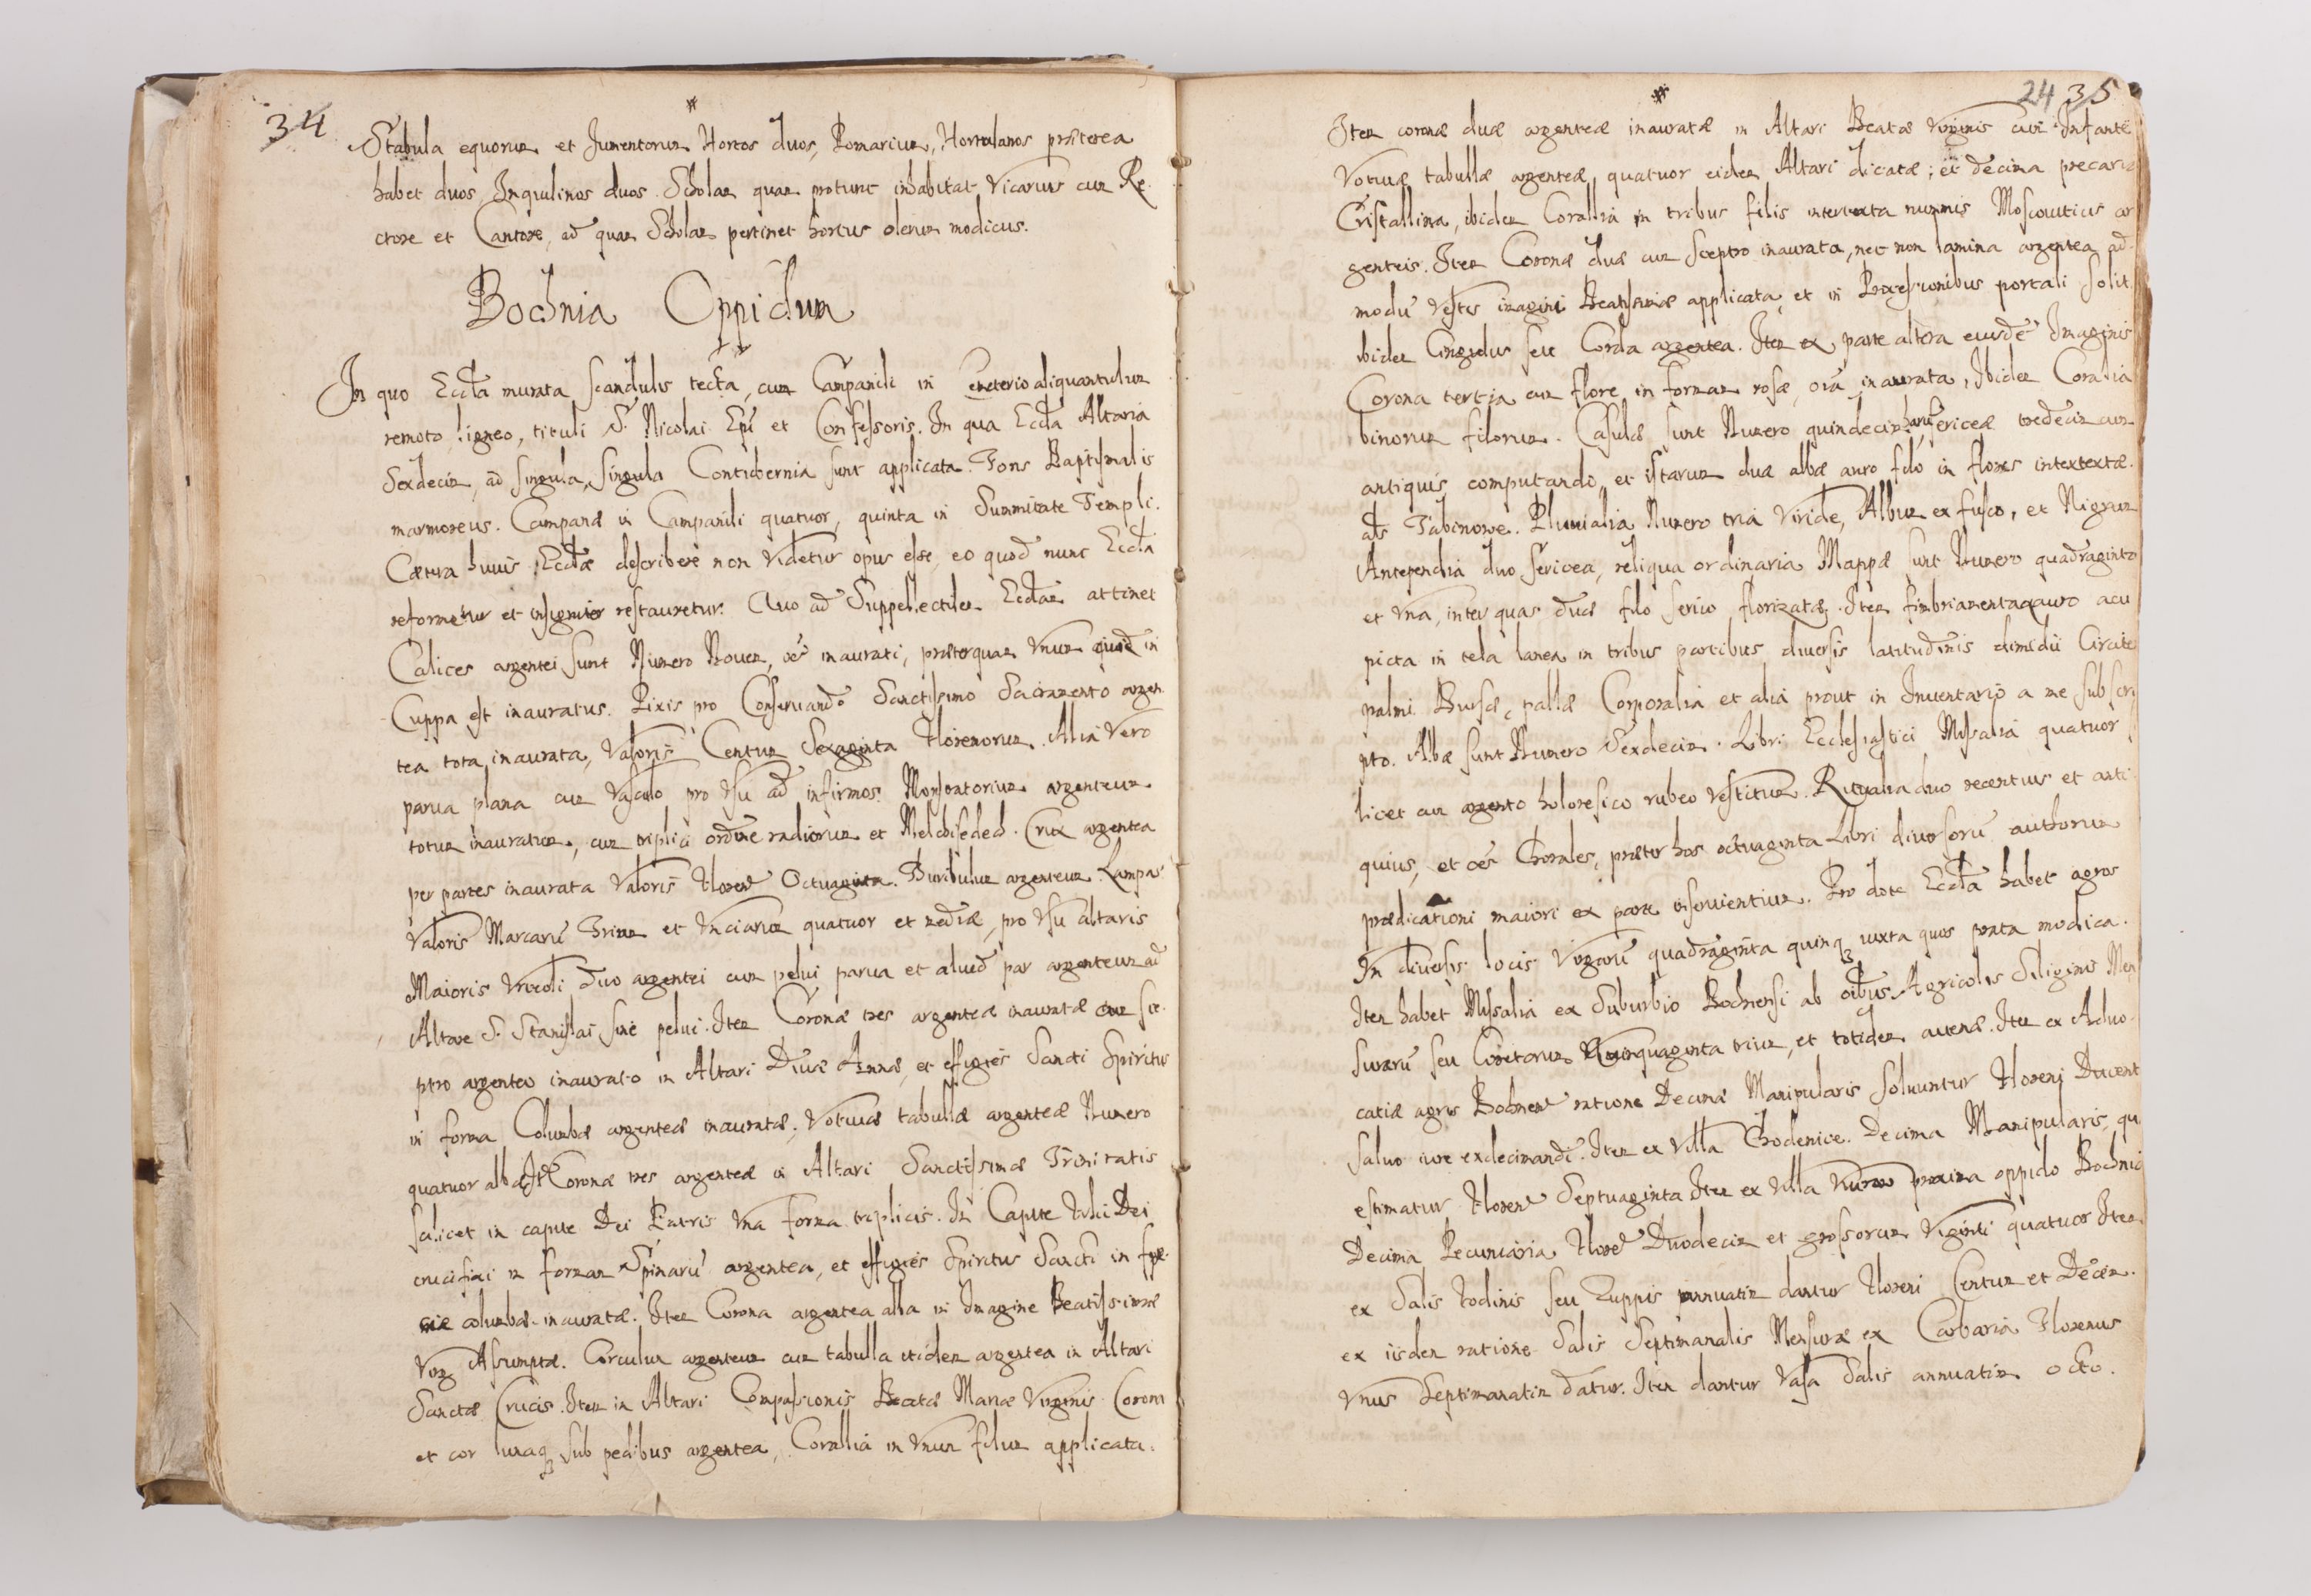 34
Stabula equorum et Jumentorum Hortos duos, Pomarium, Hortulanos præterea
habet duos Inquilinos duos. Scholam quam protunc inhabitat Vicarius cum Re-
ctore et Cantore, ad quam Scholam pertinet hortus olerum modicus.
Bochnia Oppidum
In quo Eccla murata scandulis tecta, cum Campanili in Cmeterio aliquantulum
remoto ligneo, tituli S. Nicolai Epi et Confessoris. In qua Eccla Altaria
Sexdecim, ad singula, singula Contubernia sunt applicata. Fons Baptismalis
marmoreus. Campanæ in Campanili quatuor, quinta in Summitate Templi.
Cætera huius Ecclæ describere non videtur opus esse, eo quod nunc Eccla
reformetur et insigniter restauretur. Quo ad Suppellectilem Ecclæ attinet
Calices argentei sunt Numero Novem, oēs inaurati, præterquam Vnum in
Cuppa est inauratus. Pixis pro Conservando Sanctissimo Sacramento argen-
tea tota inaurata, Valoris Centum Sexaginta Florenorum. Alia Vero
parua plana cum Vasculo pro Vsu ad infirmos. Monstratorium argenteum
totum inauratum, cum triplici ordine radiorum et Melchisedech. Crux argentea
per partes inaurata Valoris Floren Octuaginta. Turibulum argenteum. Lampas
Valoris Marcarū Trium et Vnciarum quatuor et mediæ, pro Vsu altaris
Maioris Vrceoli duo argentei cum pelui parua et aliud par argenteum ad
Altare S. Stanislai sine pelui. Item Coronæ tres argenteæ inauratæ cum sce-
ptro argenteo inaurato in Altari Diuæ Annæ, et effigies Sancti Spiritus
in forma Columbæ argenteæ inauratæ. Votiuæ tabullæ argenteæ Numero
quatuor albæ. It. Coronæ tres argenteæ in Altari Sanctissimæ Trinitatis
scilicet in capite Dei Patris Vna forma triplicis. In Capite Filii Dei
crucifixi in formam Spinarū argentea, et effigies Spiritus Sancti in spe-
ciæ columbæ inauratæ. Item Corona argentea alba in Imagine Beatissimæ
Virg Assumptæ. Corculum argenteum cum tabulla itidem argentea in Altari
Sanctæ Crucis. Item in Altari Compassionis Beatæ Mariæ Virginis Corona
et cor lunaq3 sub pedibus argentea, Corallia in Vnum filum applicata.
24 35
Item coronæ duæ argenteæ inauratæ in Altari Beatæ Virginis cum Infante
Votiuæ tabullæ argenteæ quatuor eidem Altari dicatæ; et decima precaria
Cristallina, ibidem Corallia in tribus filis intertexta nummis Moscouiticis ar
genteis. Item Coronæ duæ cum sceptro inaurata, nec non lamina argentea ad
modū Vestis imagini Beatissimæ applicata et in Processionibus portali solit.
ibidem Cingulus seu Corda argentea. Item ex parte altera eiusdē Imaginis
Corona tertia cum flore in formam rosæ, inaurata, Ibidem Coralia
binorum filorum. Casulæ sunt Numero quindecim harū sericeæ tredecim cum
antiquis computando, et istarum duæ albæ auro filo in flores intextextæ.
als Tabinowe. Pluuialia Numero tria Viride, Album ex fusco, et Nigrum
Antependia duo sericea, reliqua ordinaria. Mappæ sunt Numero quadraginta
et vna, inter quas duæ filo serico florizatæ. Item fimbriamenta auro acu
picta in tela lanea in tribus partibus diuersis latitudinis dimidii Circite
palmi. Bursæ, pallæ Corporalia et alia prout in Inuentario a me subscri
pto. Albæ sunt Numero Sexdecim. Libri Ecclesiastici Missalia quatuor
licet cum argento holoresico rubeo Vestitum. Ritualia duo recentius et anti
quius, et oēs Chorales, præter hos octuaginta Libri diuersorū authorum
prædicationi maiori ex parte inseruientium. Pro dote Eccla habet agros
In diuersis locis Virgarū quadraginta quinq3 iuxta quos prata modica.
Item habet Missalia ex Suburbio Bochnensi ab oībus Agricolis Siliginis Men
surarū seu Coretorum Quinquaginta trium, et totidem auenæ. Item ex Aduo-
catiæ agris Bochnen ratione Decimæ Manipularis soluuntur Floreni Ducent
saluo iure exdecimandi. Item ex Villa Chodenice. Decima Manipularis, qu
estimatur Floren Septuaginta Item ex Villa proxima oppido Bochnia
Decima Pecuniaria Flore Duodecim et grossorum Viginti quatuor Item
ex Salis Fodinis seu Zuppis annuatim dantur Floreni Centum et Decem.
ex iisdem ratione Salis Septimanalis Mensuræ ex Carbaria Florenus
Vnus Septimanatim datur. Item dantur Vasa Salis annuatim octo.